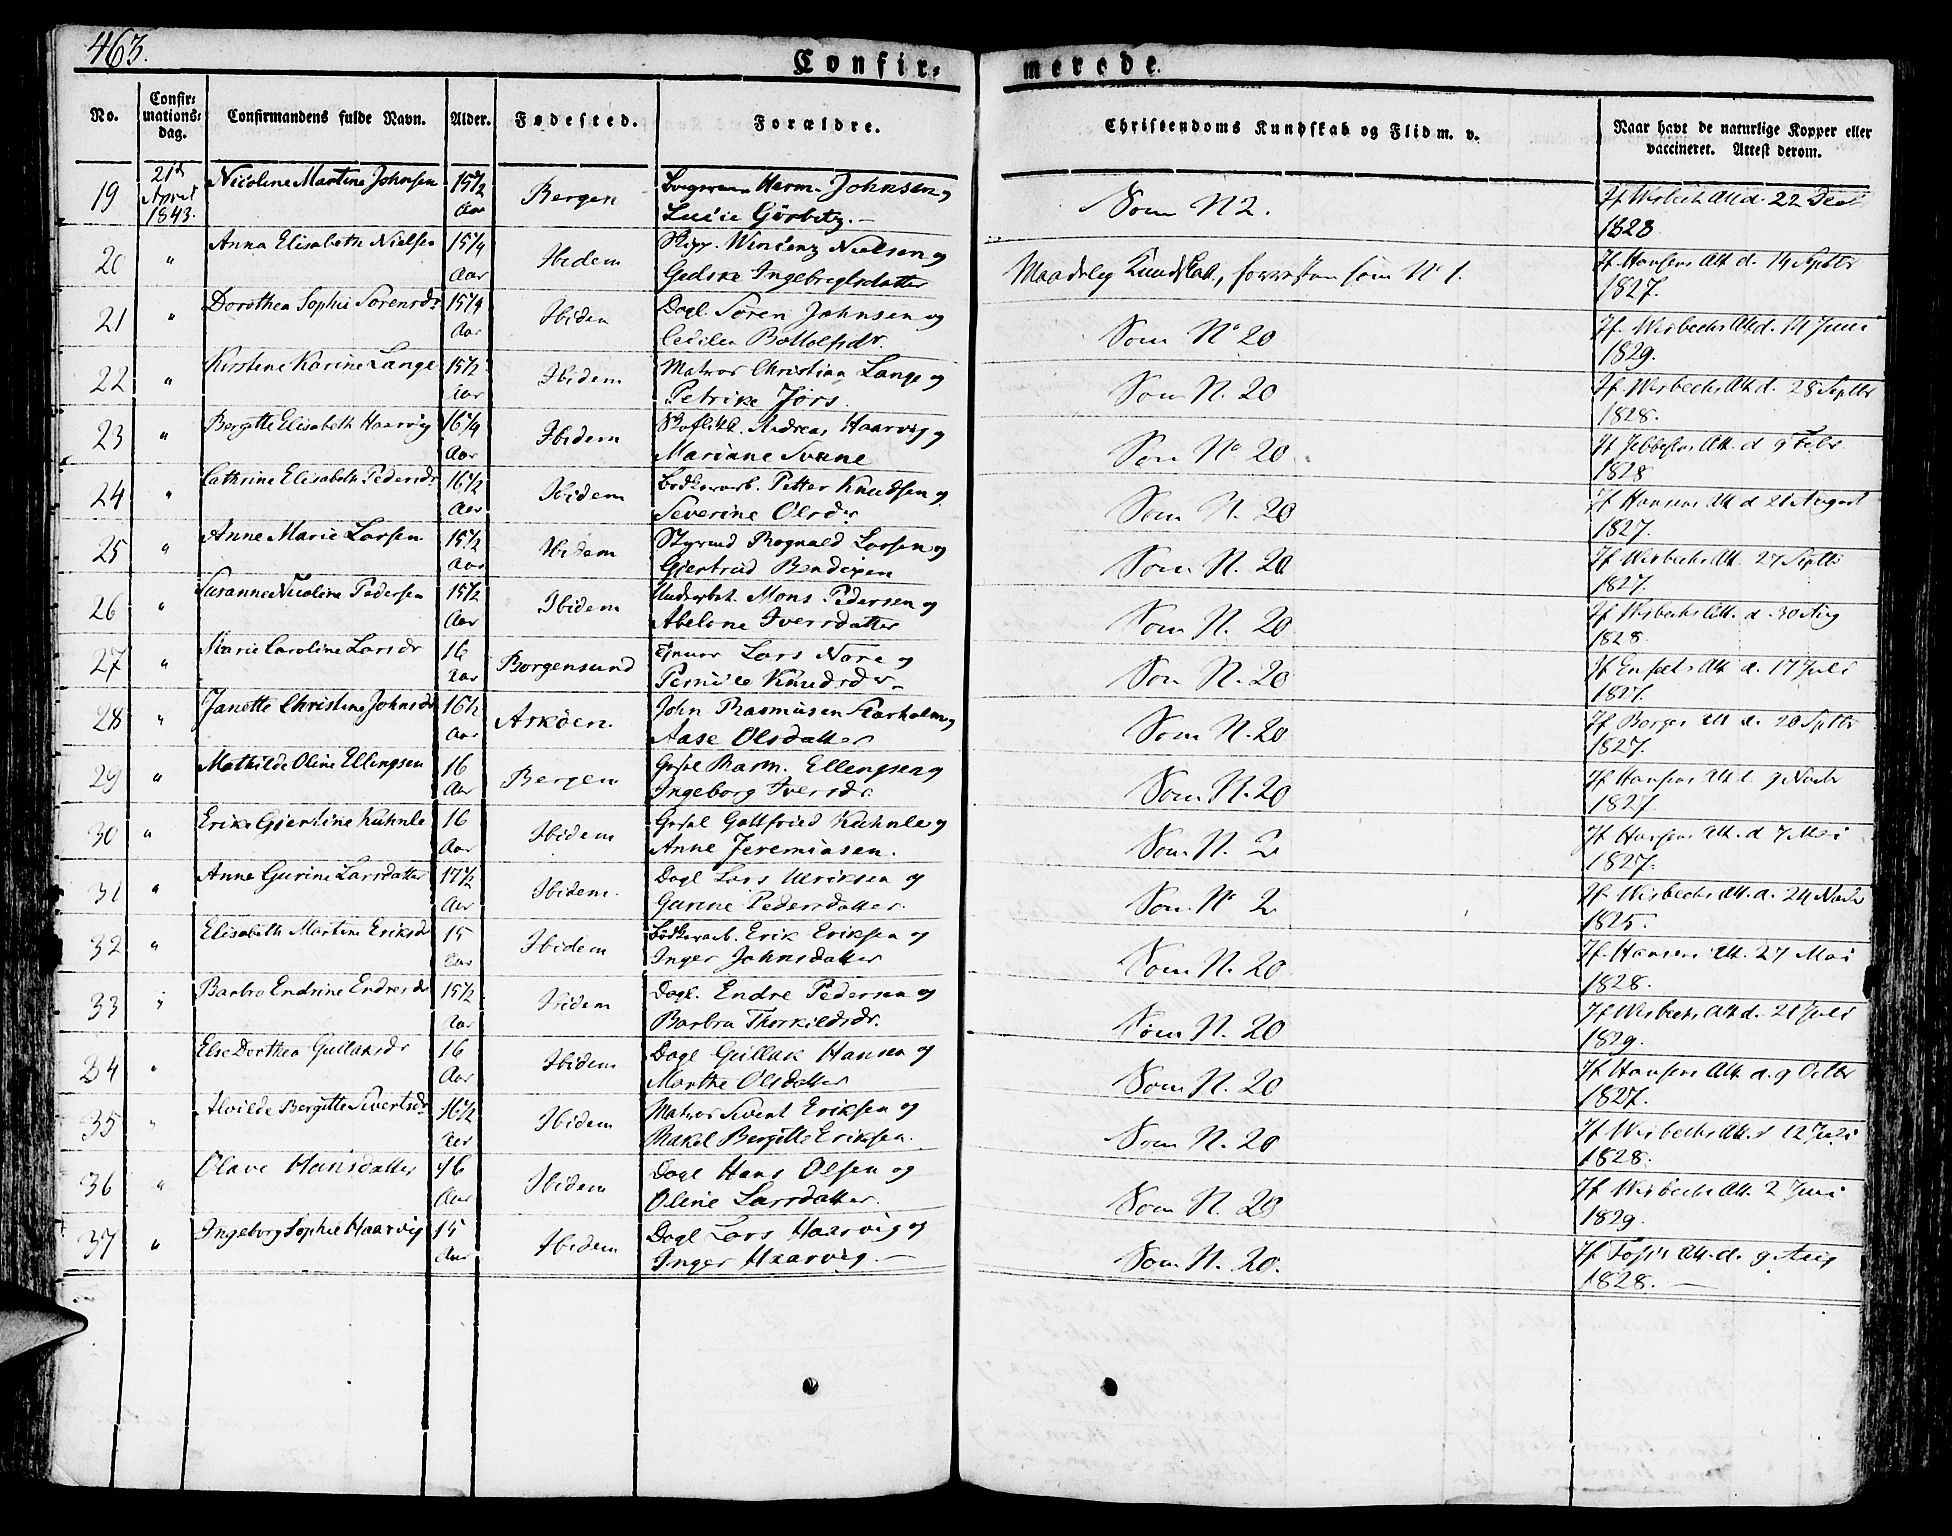 463.
Confir- merede.
No. Confir-mations-dag. Confirmandens fulde Navn. Alder. Fødested. Forældre. Christendoms Kundskab og Flid m. v. Naar havt de naturlige Kopper eller vaccineret. Attest derom.
19 21d April 1843. Nicoline Martine Johnsen 15 1/2 Aar Bergen Herm. Johnsen og
Lucie Görbitz.— Som N 2. If Wisbech Att d. 22 1828
20 " Anna Elisabeth Nielsen 15 1/4 Aar Ibidem Skipp. Nielsen og
Gudske Ingebregtsdatter Maadelig Kundskab, forresten som No 1. If Hansens Att. d. 14 Septbr 1827.
21 " Dorothea Sophie Sørensdr 15 1/4 Aar Ibidem Dagl. Søren Johnsen og
Bottolfsdr. Som No 20 If. Wisbechs Att d. 14 Juni 1829.
22 " Kirstine Karine Lange 15 1/2 Aar Ibidem Matros Christian Lange og
Petrike Jörs. Som N. 20 If Wisbechs Att d. 28 Septbr 1828.
23 " Bergitte Elisabeth Haarvig 16 1/4 Aar Ibidem Andreas Haarvig og
Mariane Svane Som No 20 If Att. d 9 Febr 1828
24 " Cathrine Elisabeth Pedersdr 16 1/2 Aar Ibidem Bødkerarb. Petter Knudsen og
Severine Olsdr. Som N. 20 If Hansens Att d 21 August 1827.
25 " Anne Marie Larsen 15 1/2 Aar Ibidem Styrmd Rognald Larsen og
Giertrud Bendixen Som N. 20 If Wisbechs Att. 27 Septbr 1827.
26 " Susanne Nicoline Pedersen 15 1/2 Aar Ibidem Mons Pedersen og
Abelone Iversdatter Som N. 20 If Wisbechs Att. d. 30 Aug 1828.
27 " Marie Caroline Larsdr 16 Aar Borgensund Lars Nore og
Pernile Knudsdr— Som N. 20 If Att d. 17 Juli 1827.
28 " Janette Christine Johnsdr 16 1/2 Aar Askøen. John Rasmusen Starholm og
Aase Olsdatter Som N. 20 If Att d. 20 Septbr 1827.
29 " Mathilde Oline Ellingsen 16 Aar Bergen Rasm. Ellengsen og
Ingeborg Iversdr. Som N. 20 If Hansens Att d. 9 Novbr 1827
30 " Erike Giertine Kühnle 16 Aar Ibidem Gottfried Kühnle og
Anne Jeremiasen. Som N. 2 If Hansens Att. d 7 Mai 1827.
31 " Anne Gurine Larsdatter 17 1/2 Aar Ibidem. Dagl Lars Ulriksen og
Gurine Pedersdatter. Som No 2 If Wisbechs Att. d. 24 Novbr 1825.
32 " Elisabeth Martine Eriksdr 15 Aar Ibidem Bødkerarb. Erik Eriksen og
Inger Johnsdatter Som N. 20 If. Hansens Att. 27 Mai 1828.
33 " Barbro Endrine Endresdr 15 1/2 Aar Ibidem Dagl. Endre Pedersen og
Barbra Thorkildsdr. Som N. 20 If Wisbechs Att d. 21 Juli 1829.
34 " Else Dorthea Gullaksdr 16 Aar Ibidem Dagl Gullak Hansen og
Marthe Olsdatter Som N. 20 If Hansens Att. d. 9 Octbr 1827.
35 " Alvilde Bergitte Sivertsdr 16 1/2 Aar Ibidem Matros Sivert Eriksen og
Rakel Bergitte Eriksen. Som N. 20 If Wisbechs Att. d 12 Juli 1828.
36 " Olave Hansdatter 16 Aar Ibidem Dagl Hans Olsen og
Oline Larsdatter. Som N. 20 If Wisbechs Att. 2 Juni 1829.
37 " Ingeborg Sophie Haarvig 15 Aar Ibidem Dagl Lars Haarvig og
Inger Haarvig.— Som N. 20. If Att. d. 9 Aug 1828.—